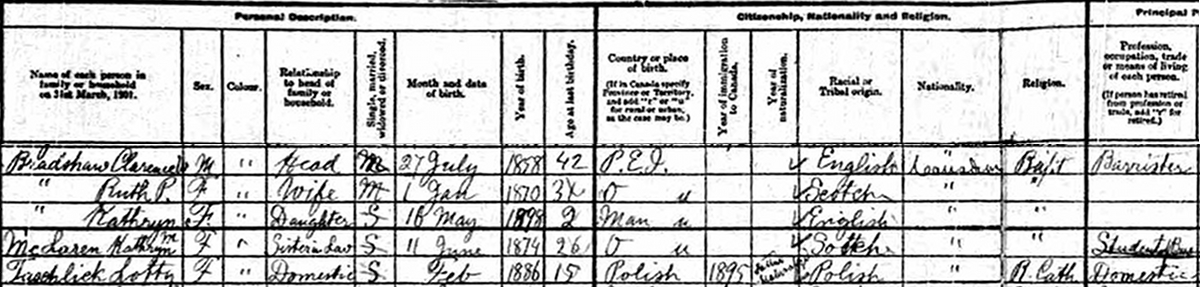 Personal Description. Citizenship, Nationality and Religion. Principal P
Name of each person in family or household on 31st March, 1901. Sex. Colour. Relationship to head of family or household. Single, married, widowed or divorced. Month and date of birth. Year of birth. Age at last birthday. Country or place of birth. (If in Canada specify Province or Territory, and add "r" or "u" for rural or urban, as the case may be.) Year of immigration to Canada. Year of naturalization. Racial or Tribal origin. Nationality. Religion. Profession, occupation, trade or means of living of each person. (If person has retired from profession or trade, add "r" for retired.)
Bradshaw Clarence M " Head M 27 July 1858 42 P.E.I. English Canadian Bapt Barrister
" Ruth P. F " Wife M 1 Jan 1870 O u Scotch " "
" Kathryn F " Daughter S 18 May 1898 2 Man u English " "
McLaren Kathryn M F " Sister in Law S 11 June 1874 26 O u Scotch " " Student
Lotty F " Domestic S Feb 1886 15 Polish 1895 Polish " R. Cath Domestic